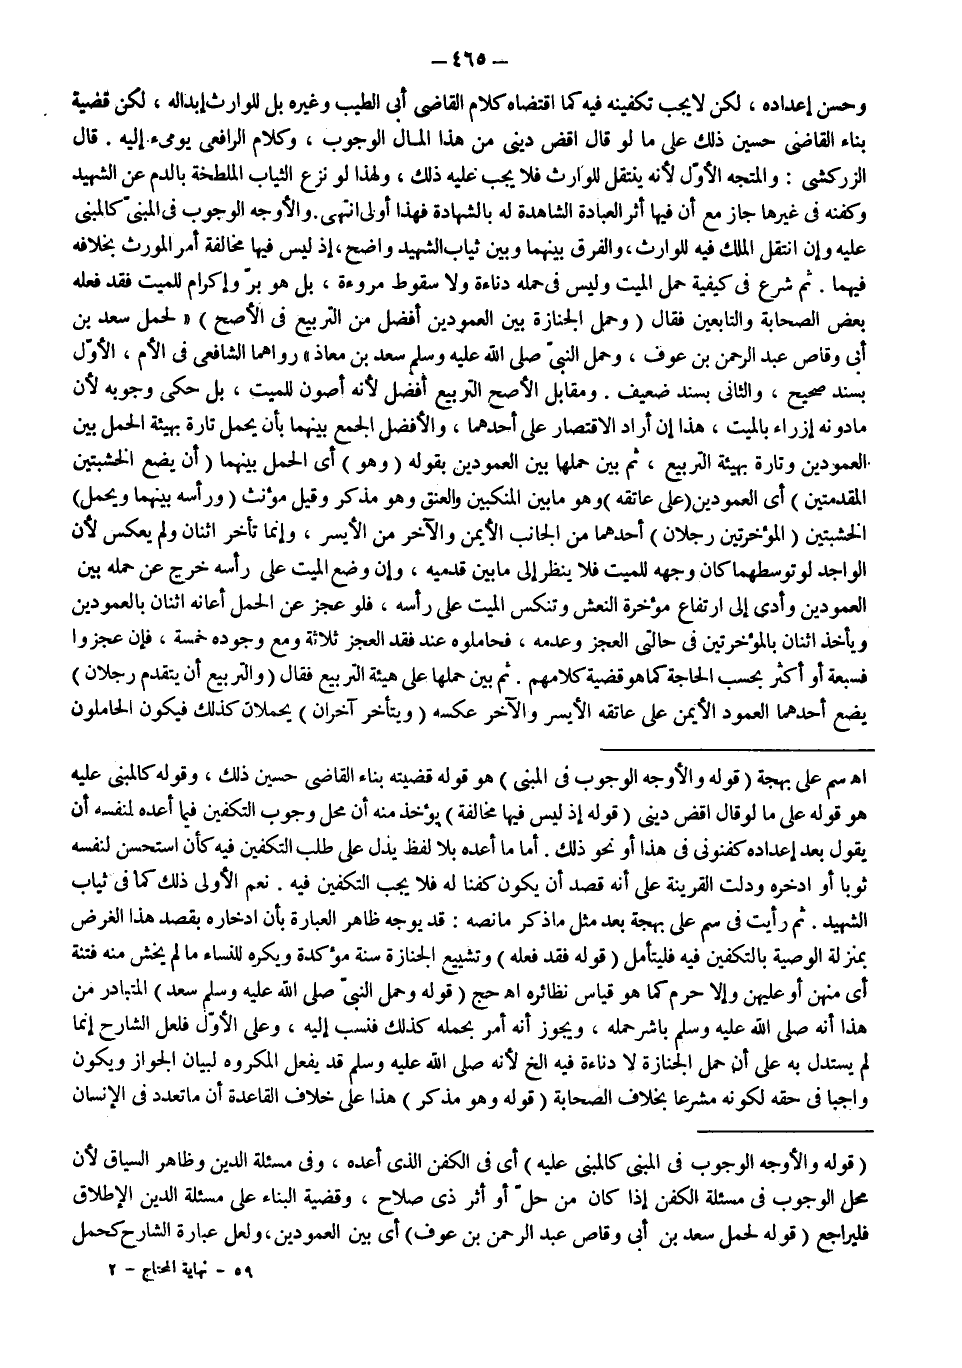 — ٤٦٥ —
وحسن إعداده ، لكن لايجب تكفينه فيه كما اقتضاه كلام القاضى أبى الطيب وغيره بل للوارث إبداله ، لكن قضية
بناء القاضى حسين ذلك على ما لو قال اقض دينى من هذا المال الوجوب ، وكلام الرافعى يومىء إليه . قال
الزركشى : والمتجه الأوّل لأنه ينتقل للوارث فلا يجب عليه ذلك ، ولهذا لو نزع الثياب الملطخة بالدم عن الشهيد
وكفنه فى غيرها جاز مع أن فيها أثر العبادة الشاهدة له بالشهادة فهذا أولى انتهى . والأوجه الوجوب فى المبنىّ كالمبنى
عليه وإن انتقل الملك فيه للوارث ، والفرق بينهما وبين ثياب الشهيد واضح ، إذ ليس فيها مخالفة أمر المورث بخلافه
فيهما . ثم شرع فى كيفية حمل الميت وليس فى حمله دناءة ولا سقوط مروءة ، بل هو برّ وإكرام للميت فقد فعله
بعض الصحابة والتابعين فقال ( وحمل الجنازة بين العمودين أفضل من التربيع فى الأصح ) « لحمل سعد بن
أبى وقاص عبد الرحمن بن عوف ، وحمل النبىّ صلى الله عليه وسلم سعد بن معاذ » رواهما الشافعى فى الأم ، الأوّل
بسند صحيح ، والثانى بسند ضعيف . ومقابل الأصح التربيع أفضل لأنه أصون للميت ، بل حكى وجوبه لأن
مادونه إزراء بالميت ، هذا إن أراد الاقتصار على أحدهما ، والأفضل الجمع بينهما بأن يحمل تارة بهيئة الحمل بين
العمودين وتارة بهيئة التربيع ، ثم بين حملها بين العمودين بقوله ( وهو ) أى الحمل بينهما ( أن يضع الخشبتين
المقدمتين ) أى العمودين ( على عاتقه ) وهو مابين المنكبين والعنق وهو مذكر وقيل مؤنث ( ورأسه بينهما ويحمل )
الخشبتين ( المؤخرتين رجلان ) أحدهما من الجانب الأيمن والآخر من الأيسر ، وإنما تأخر اثنان ولم يعكس لأن
الواحد لو توسطهما كان وجهه للميت فلا ينظر إلى مابين قدميه ، وإن وضع الميت على رأسه خرج عن حمله بين
العمودين وأدى إلى ارتفاع مؤخرة النعش وتنكس الميت على رأسه ، فلو عجز عن الحمل أعانه اثنان بالعمودين
ويأخذ اثنان بالمؤخرتين فى حالتى العجز وعدمه ، فحاملوه عند فقد العجز ثلاثة ومع وجوده خمسة ، فإن عجزوا
فسبعة أو أكثر بحسب الحاجة كما هو قضية كلامهم . ثم بين حملها على هيئة التربيع فقال ( والتربيع أن يتقدم رجلان )
يضع أحدهما العمود الأيمن على عاتقه الأيسر والآخر عكسه ( ويتأخر آخران ) يحملان كذلك فيكون الحاملون
اه سم على بهجة ( قوله والأوجه الوجوب فى المبنى ) هو قوله قضيته بناء القاضى حسين ذلك ، وقوله كالمبنى عليه
هو قوله على ما لوقال اقض دينى ( قوله إذ ليس فيها مخالفة ) يؤخذ منه أن محل وجوب التكفين فيما أعده لنفسه أن
يقول بعد إعداده كفنونى فى هذا أو نحو ذلك . أما ما أعده بلا لفظ يدل على طلب التكفين فيه كأن استحسن لنفسه
ثوبا أو ادخره ودلت القرينة على أنه قصد أن يكون كفنا له فلا يجب التكفين فيه . نعم الأولى ذلك كما فى ثياب
الشهيد . ثم رأيت فى سم على بهجة بعد مثل ماذكر مانصه : قد يوجه ظاهر العبارة بأن ادخاره بقصد هذا الغرض
بمنزلة الوصية بالتكفين فيه فليتأمل ( قوله فقد فعله ) وتشييع الجنازة سنة مؤكدة ويكره للنساء ما لم يخش منه فتنة
أى منهن أو عليهن وإلا حرم كما هو قياس نظائره اه حج ( قوله وحمل النبىّ صلى الله عليه وسلم سعد ) المتبادر من
هذا أنه صلى الله عليه وسلم باشر حمله ، ويجوز أنه أمر بحمله كذلك فنسب إليه ، وعلى الأوّل فلعل الشارح إنما
لم يستدل به على أن حمل الجنازة لا دناءة فيه الخ لأنه صلى الله عليه وسلم قد يفعل المكروه لبيان الجواز ويكون
واجبا فى حقه لكونه مشرعا بخلاف الصحابة ( قوله وهو مذكر ) هذا على خلاف القاعدة أن ماتعدد فى الإنسان
( قوله والأوجه الوجوب فى المبنى كالمبنى عليه ) أى فى الكفن الذى أعده ، وفى مسئلة الدين وظاهر السياق لأن
محل الوجوب فى مسئلة الكفن إذا كان من حلّ أو أثر ذى صلاح ، وقضية البناء على مسئلة الدين الإطلاق
فليراجع ( قوله لحمل سعد بن أبى وقاص عبد الرحمن بن عوف ) أى بين العمودين ، ولعل عبارة الشارح كحمل
٥٩ - نهاية المحتاج - ٢